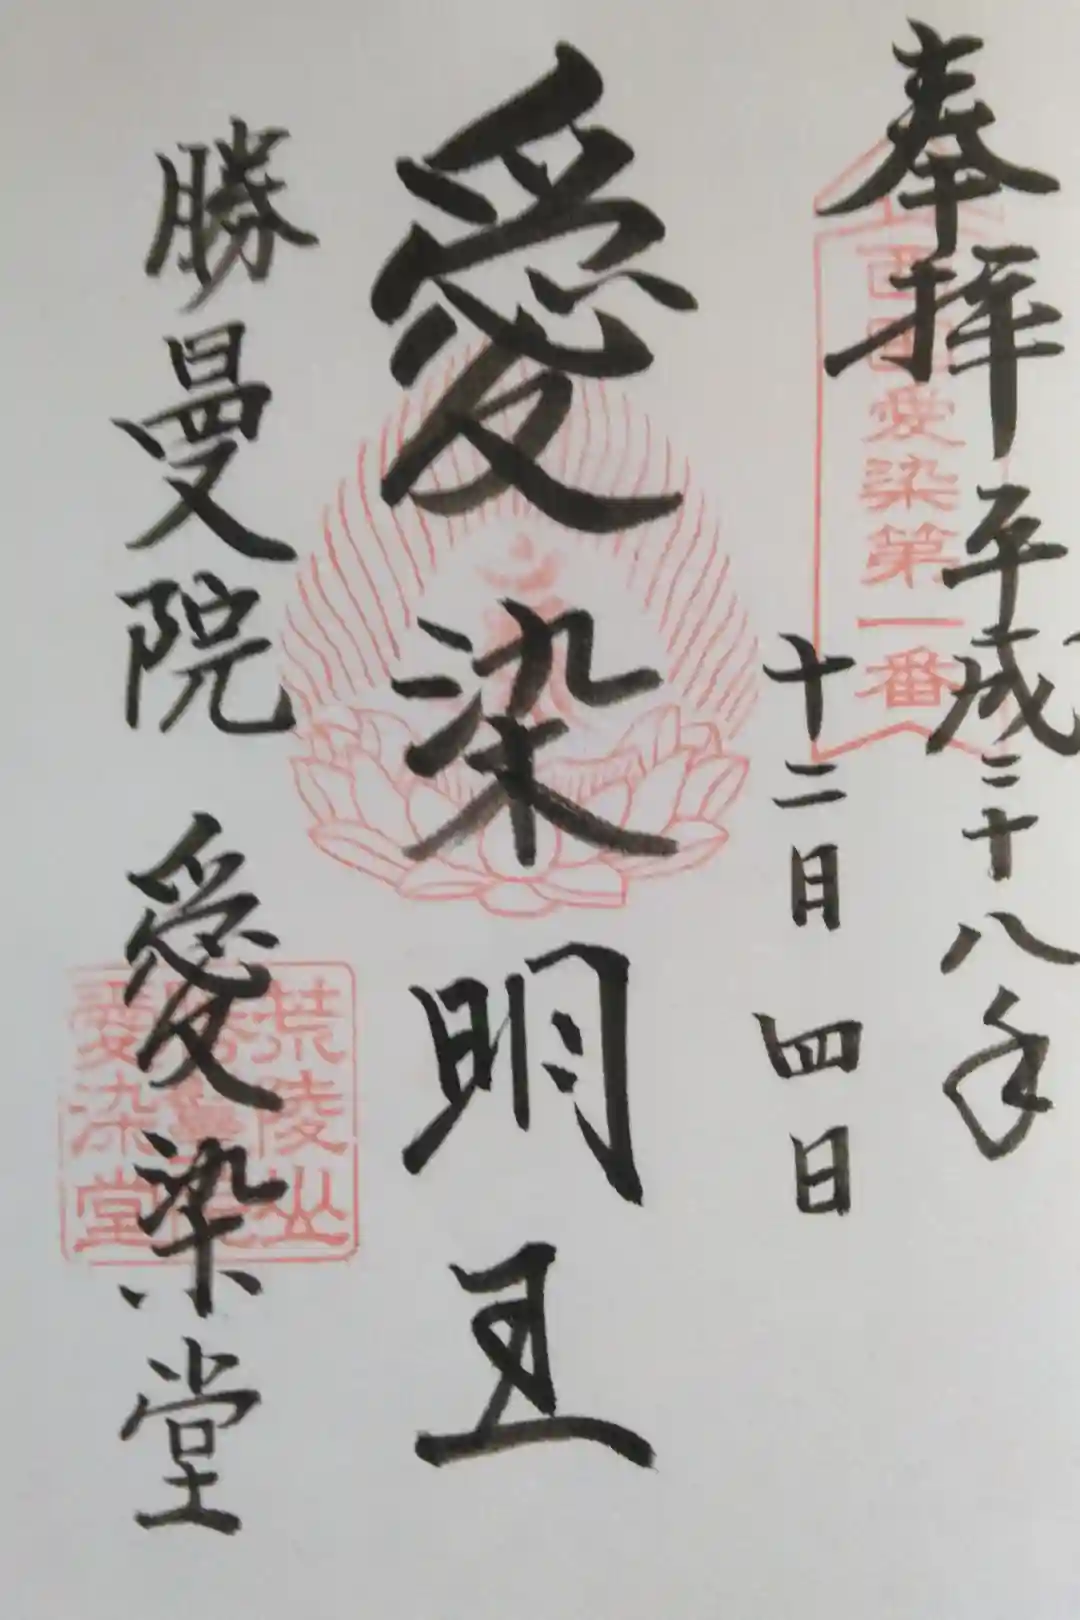 奉拝 平成二十八年
十二月四日
西国愛染第一番
愛染明王
勝曼院 愛染堂
荒陵山
勝鬘院
愛染堂